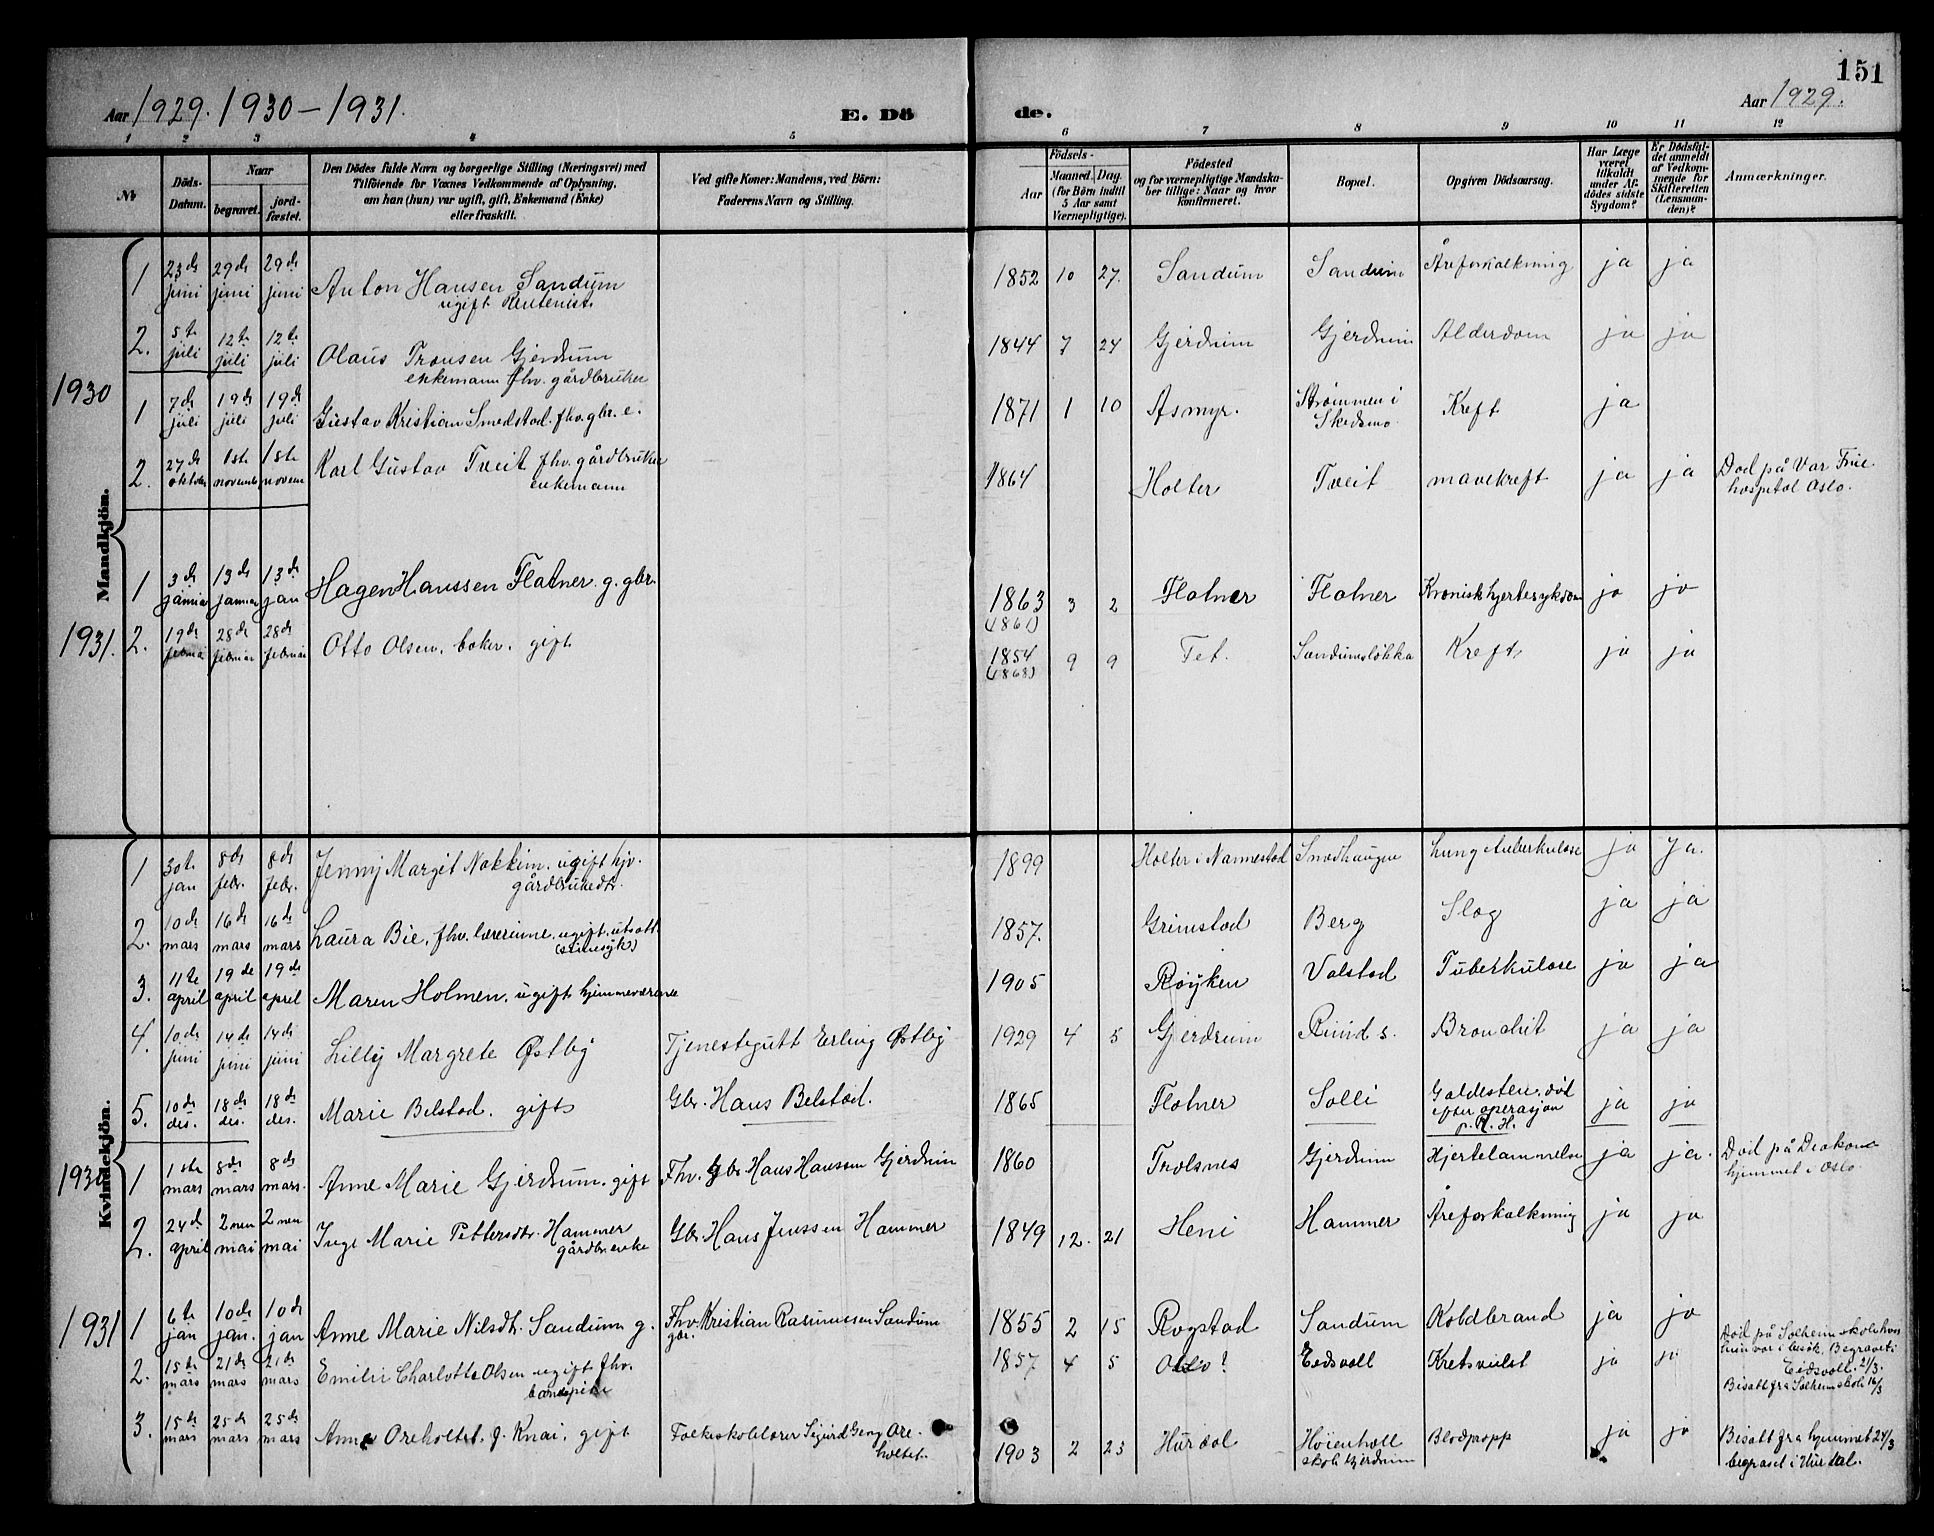 151
Aar 1929. 1930 – 1931.
E. Dö
de.
Aar 1929.
1 2 3 4 5 6 7 8 9 10 11 12
№
Döds-
Datum.
Naar
begravet.
jord-
fæstet.
Den Dödes fulde Navn og borgerlige Stilling (Næringsvei) med
Tilföiende for Voxnes Vedkommende af Oplysning,
om han (hun) var ugift, gift, Enkemand (Enke)
eller fraskilt.
Ved gifte Koner: Mandens, ved Börn:
Faderens Navn og Stilling.
Födsels-
Aar
Maaned. Dag.
(for Börn indtil
5 Aar samt
Værnepligtige).
Födested
og for værnepligtige Mandska-
ber tillige: Naar og hvor
konfirmeret.
Bopæl.
Opgiven Dödsaarsag.
Har Læge
været
tilkaldt
under Af-
dödes sidste
Sygdom?
Er Dödsfal-
det anmeldt
af Vedkom-
mende for
Skifteretten
(Lensman-
den)?
Anmærkninger.
Mandkjön.
1 23de juni 29de juni 29de juni Anton Hansen Sandum
ugift Rentenist. 1852 10 27. Sandum Sandum Åreforkalkning ja ja
2. 5te juli 12te juli 12te juli Olaus Tronsen Gjerdrum
enkemann fhv. gårdbruker 1844 7 24 Gjerdrum Gjerdrum Alderdom ja ja
1930
1 7de juli 19de juli 19de juli Gustav Kristian Smedstad. fhv. gbr. e. 1871 1 10 Asmyr. Strømmen i
Skedsmo. Kreft ja
2. 27de oktober 1ste novemb. 1ste novem Karl Gustav Tveit fhv. gårdbruker
enkemann 1864 Holter Tveit mavekreft ja ja Død på Vår Frue
hospital Oslo.
1 3de januar 13de januar 13de jan Hagen Hanssen Flatner. g. gbr. 1863
(1861) 3 2 Flatner Flatner Kronisk hjertesykdom ja ja
1931. 2. 19de februar 28de februar 28de februar Otto Olsen. gift 1854
(1868) 9 9 Fet. Sandumsløkka Kreft ja ja
Kvindekjön.
1 30te jan 8de febr. 8de febr. Jenny Margit Nakkim. ugift hjv.
gårdbrukerdtr. 1899 Holter i Nannestad Smedhaugen Lungetuberkulose ja ja.
2. 10de mars 16de mars 16de mars Laura Bie, fhv. lærerinne. ugift. utsatt
(sinnsyk) 1857. Grimstad Berg Slag ja ja
3. 11te april 19de april 19de april Maren Holmen. ugift hjemmeværende 1905 Røyken Valstad Tuberkulose ja ja
4. 10de juni 14de juni 14de juni Lilly Margrete Østby Tjenestegutt Erling Østby 1929 4 5 Gjerdrum Ruud s. Bronchit ja ja
5. 10de des. 18de des. 18de des. Marie Belstad. gift Gbr. Hans Belstad. 1865 Flatner Solli Galdesten. død
efter operasjon
p. R. H. ja ja
1930 1 1ste mars 8de mars 8de mars. Anne Marie Gjerdrum. gift Fhv. gbr Hans Hanssen Gjerdrum 1860 Trolsnes Gjerdrum Hjertelammelse ja ja. Død på Diakone
hjemmet i Oslo.
2. 24de april 2nen mai 2nen mai Inge Marie Pettersdtr. Hammer
gårdbr. enke Gbr. Hans Jenssen Hammer 1849 12. 21 Heni Hammer Åreforkalkning ja ja
1931 1 6te jan 10de jan. 10de jan Anne Marie Nilsdtr. Sandum g. Fhv. Kristian Rasmussen Sandum
gbr. 1855 2 15 Rogstad Sandum Koldbrand ja ja
2. 15de mars 21de mars 21de mars Emilie Charlotte Olsen ugift fhv. 1857 4 5 Oslo? Eidsvoll Kretsvulst ja ja Død på Solheim skole hvor
hun var i besøk. Begravet i
Eidsvoll. 21/3.
Bisatt fra Solheim skole 16/3
3. 15de mars 25de mars 25de mars Anne Oreholtet. f. Knai. gift Folkeskolelærer Sigurd Geng Ore-
holtet. 1903 2 23 Hurdal Høienhall
skole Gjerdrum Blodpropp ja ja Bisatt fra hjemmet 24/3
begravet i Hurdal.